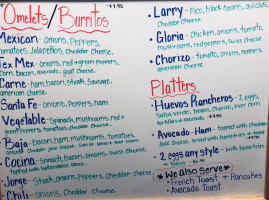 Omelets/Burritos
Mexican- onions, Peppers,
tomatoes, Jalapeños, cheddar Cheese.
Tex Mex- onions, red + green peppers,
corn, bacon, avocado, goat cheese
Carne- ham, bacon, steak, Sausage,
american cheese.
Santa Fe- onions, Peppers, ham
Vegetable- Spinach, mushrooms, red +
green peppers, tomatoes, cheddar cheese.
Baja- bacon, ham, mushrooms, tomatoes,
Cocina- Spinach, bacon, onions, swiss cheese.
Jorge- Steak, onions, Peppers, Cheddar cheese.
Chili- onions, Cheddar Cheese.
• Larry- Pico, black beans, avocado,
Cheddar cheese.
• Gloria- Chicken, onions, tomato,
mushrooms, red peppers, swiss cheese
• Chorizo- tomato, onions, peppers,
american cheese
Platters
• Huevos Rancheros- 2 eggs,
Salsa verde, beans, chorizo, over corn
tortillas + avocado.
• Avocado-Ham- topped with cheddar
• 2 eggs any style-
with toast
*We also serve*
• French Toast + Pancakes
• Avocado Toast